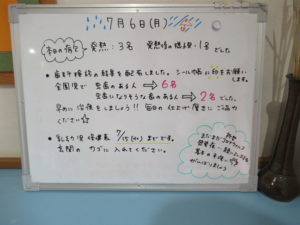 7月6日(月)
本日の病欠 発熱:3名 発熱後の様子見:1名 でした
歯科検診の結果を配布しました。シールや紙に印をお願いします。
全園児で 虫歯のある人 → 6名
虫歯になりそうな歯のある人 → 2名 でした。
早めに治療をしましょう!! 毎日の仕上げ磨きもご協力
ください
7/15(水)までです。
玄関の カゴに 入れてください。
がんばりましょう